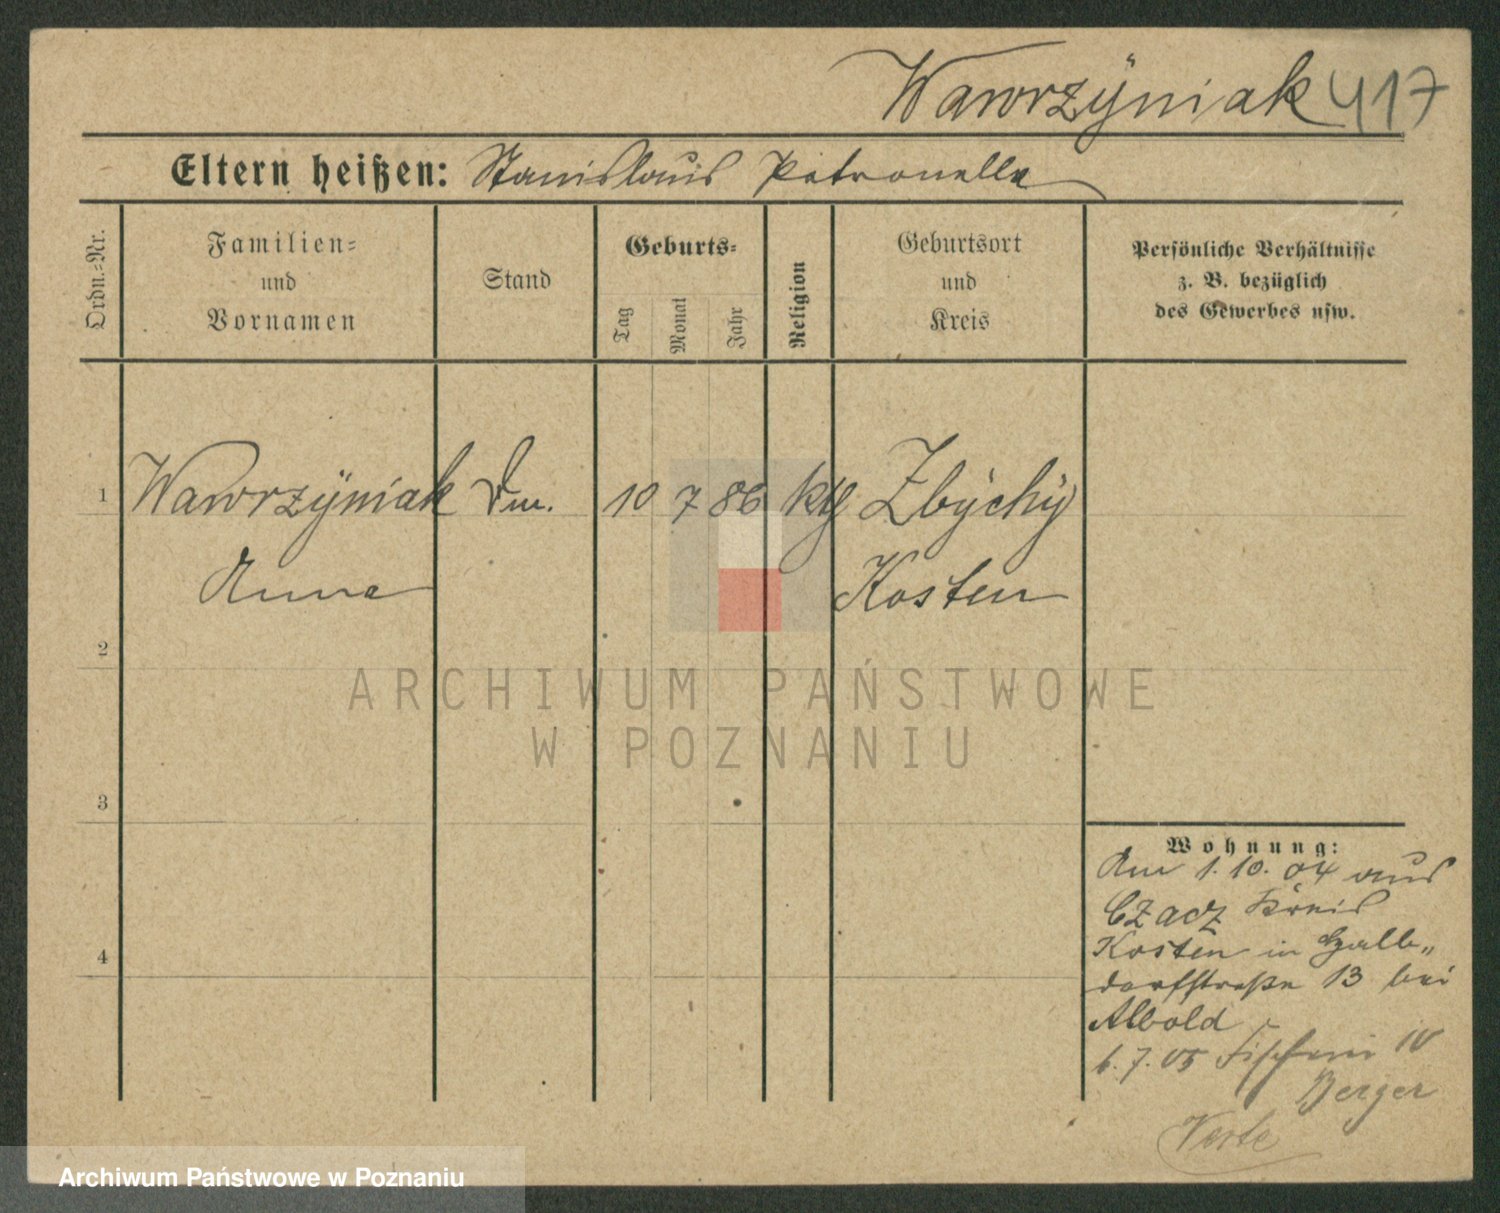 Wawrzÿniak 417
Eltern heißen: Stanislaus Petronella
Ordn.-Nr.
Familien-
und
Vornamen
Stand
Geburts-
Tag
Monat
Jahr
Religion
Geburtsort
und
Kreis
Persönliche Verhältnisse
z. B. bezüglich
des Gewerbes usw.
1 Wawrzÿniak 10 7 86 Zbÿchÿ
Anna Kosten
2
3
4
Wohnung:
Am 1.10.04 aus
Czacz Kreis
Kosten in Hall-
dorfstraße 13 bei
Albold
6.7.05 Fischerei 10
Berger
ARCHIWUM PAŃSTWOWE
W POZNANIU
Archiwum Państwowe w Poznaniu